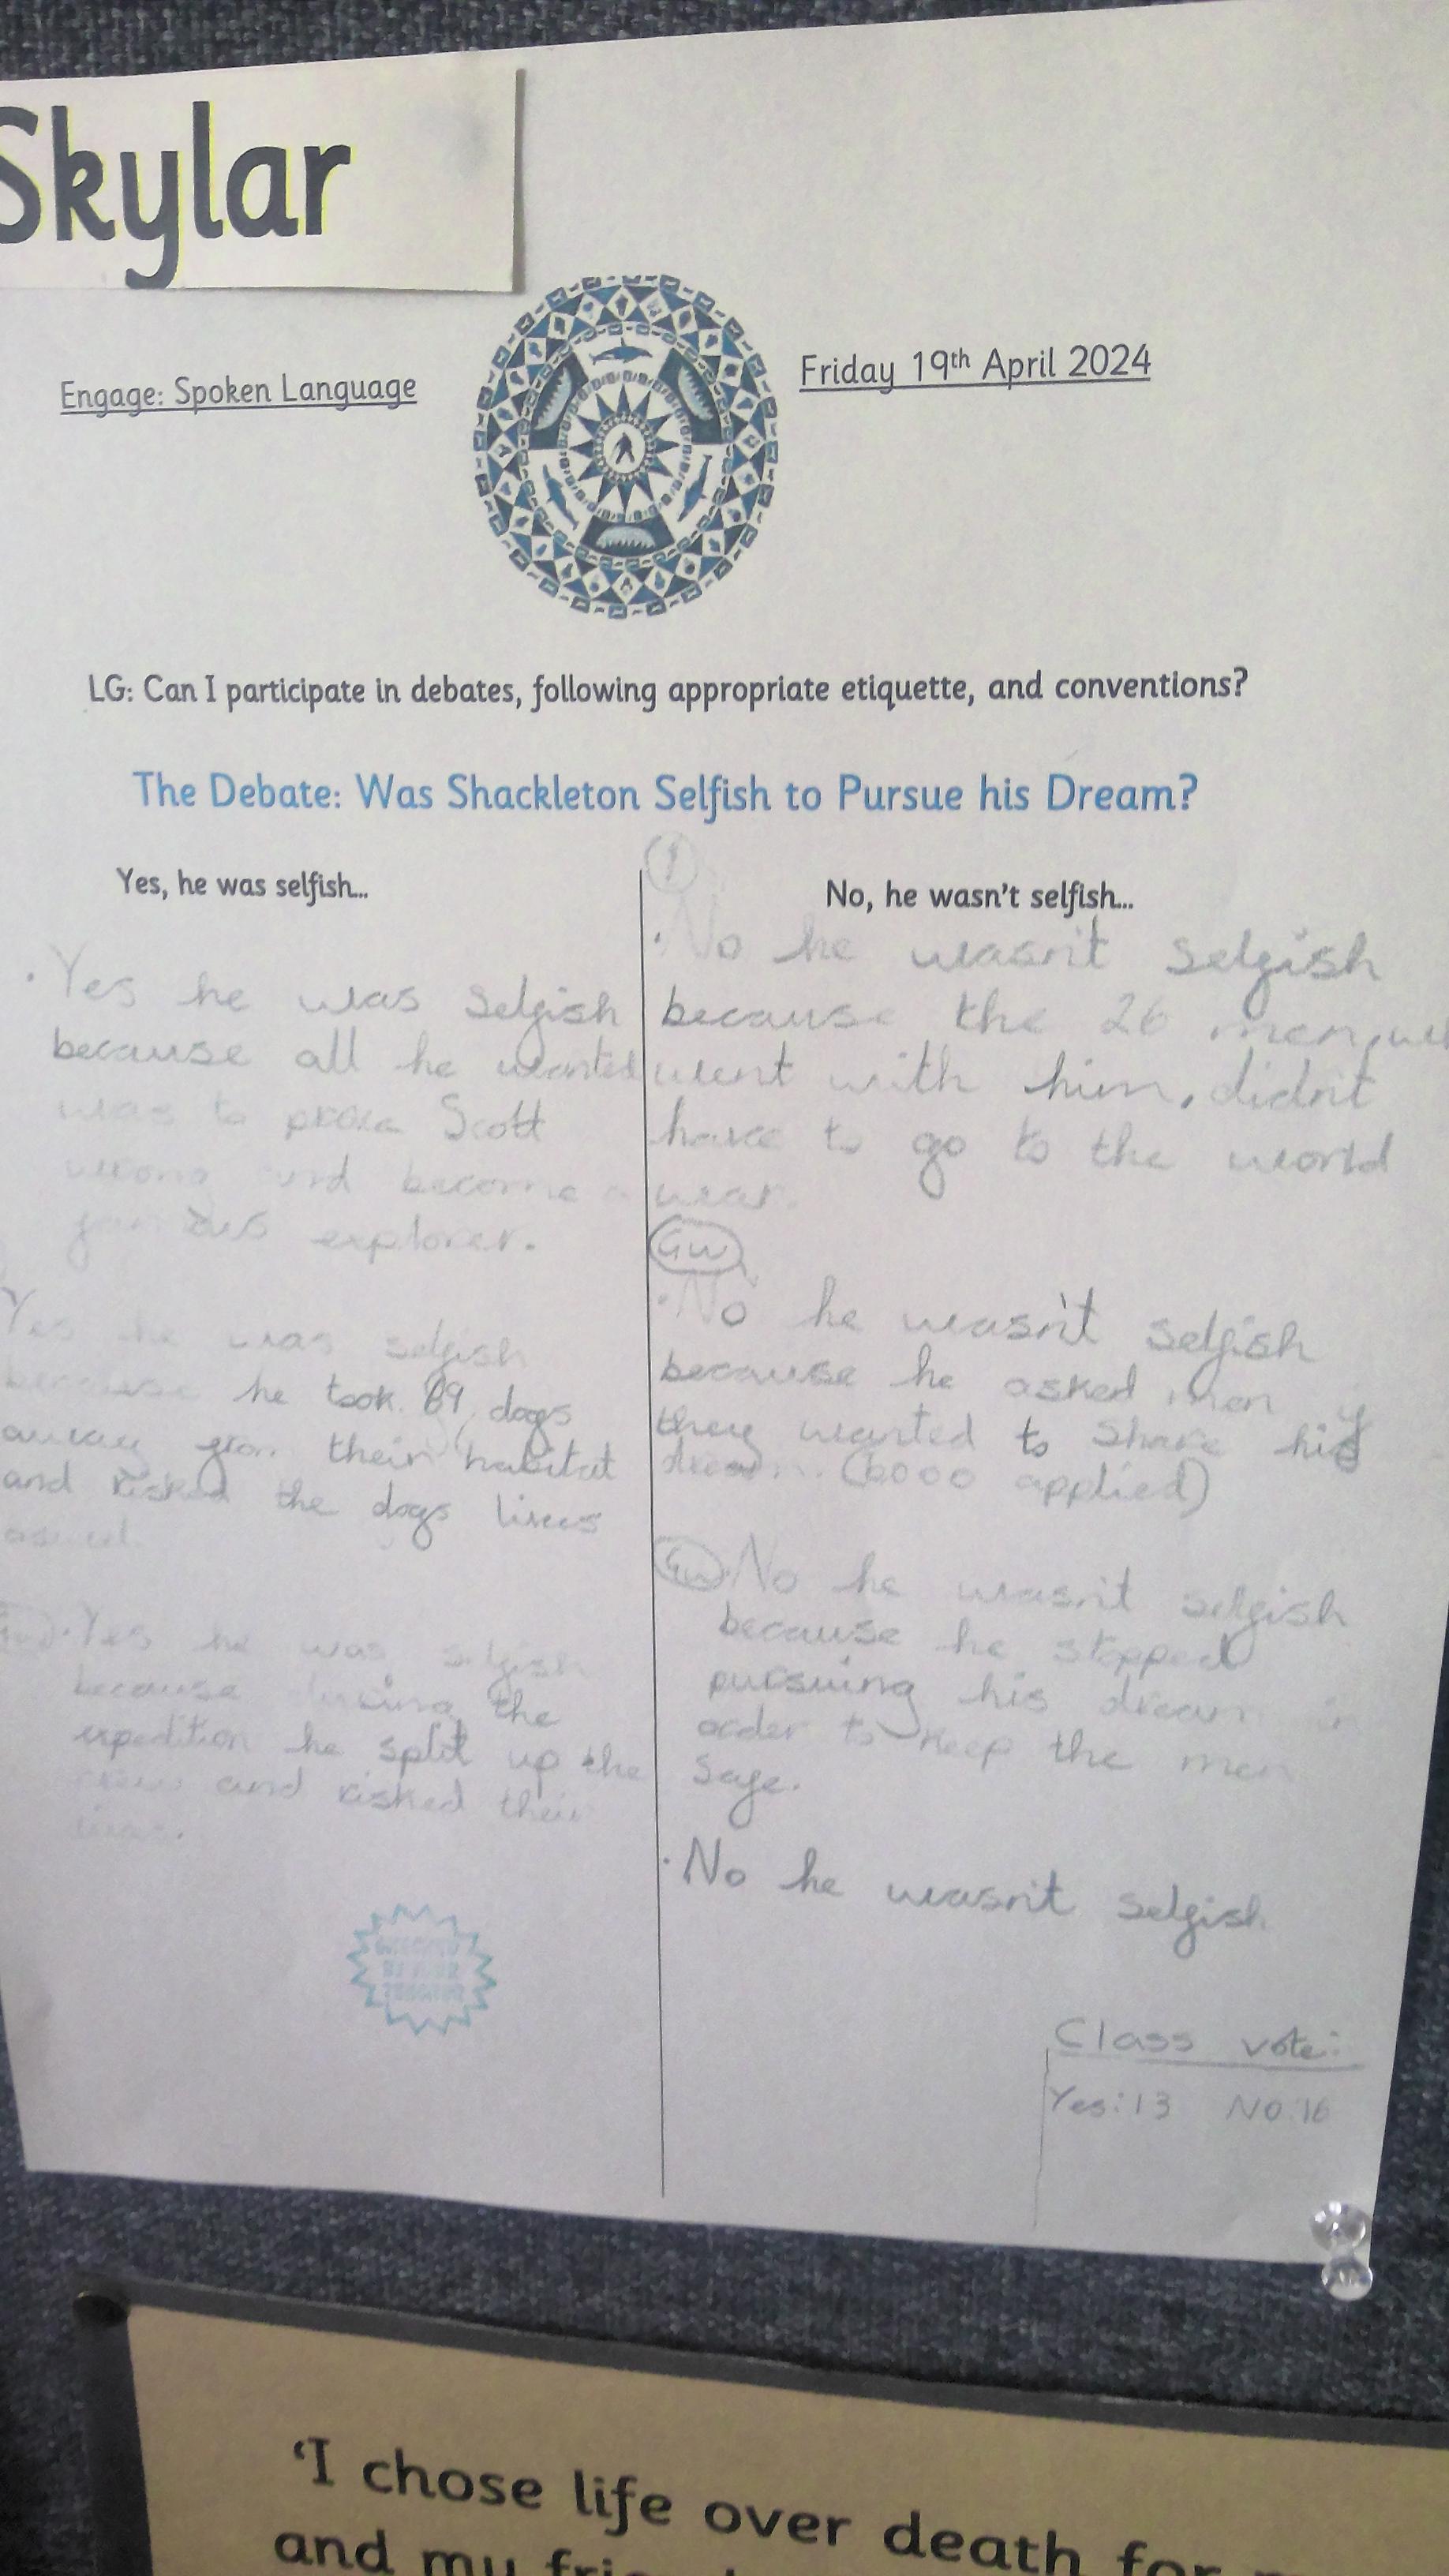 Skylar
Engage: Spoken Language
Friday 19th April 2024
LG: Can I participate in debates, following appropriate etiquette, and conventions?
The Debate: Was Shackleton Selfish to Pursue his Dream?
Yes, he was selfish...
· Yes he was selfish
because all he wanted
was to prove Scott
wrong and become a
famous explorer.
Yes he was selfish
because he took 69 dogs
away from their habitat
and risked the dogs lives
· Yes he was selfish
because during the
expedition he split up the
crew and risked their
lives.
1
No, he wasn't selfish...
· No he wasn't selfish
because the 26 men
went with him, didn't
have to go to the world
war.
GW
· No he wasn't selfish
because he asked men
they wanted to share his
dream. (5000 applied)
GW · No he wasn't selfish
because he stopped
pursuing his dream in
order to keep the men
safe.
· No he wasn't selfish
Class vote:
Yes: 13 No: 16
'I chose life over death for
and my